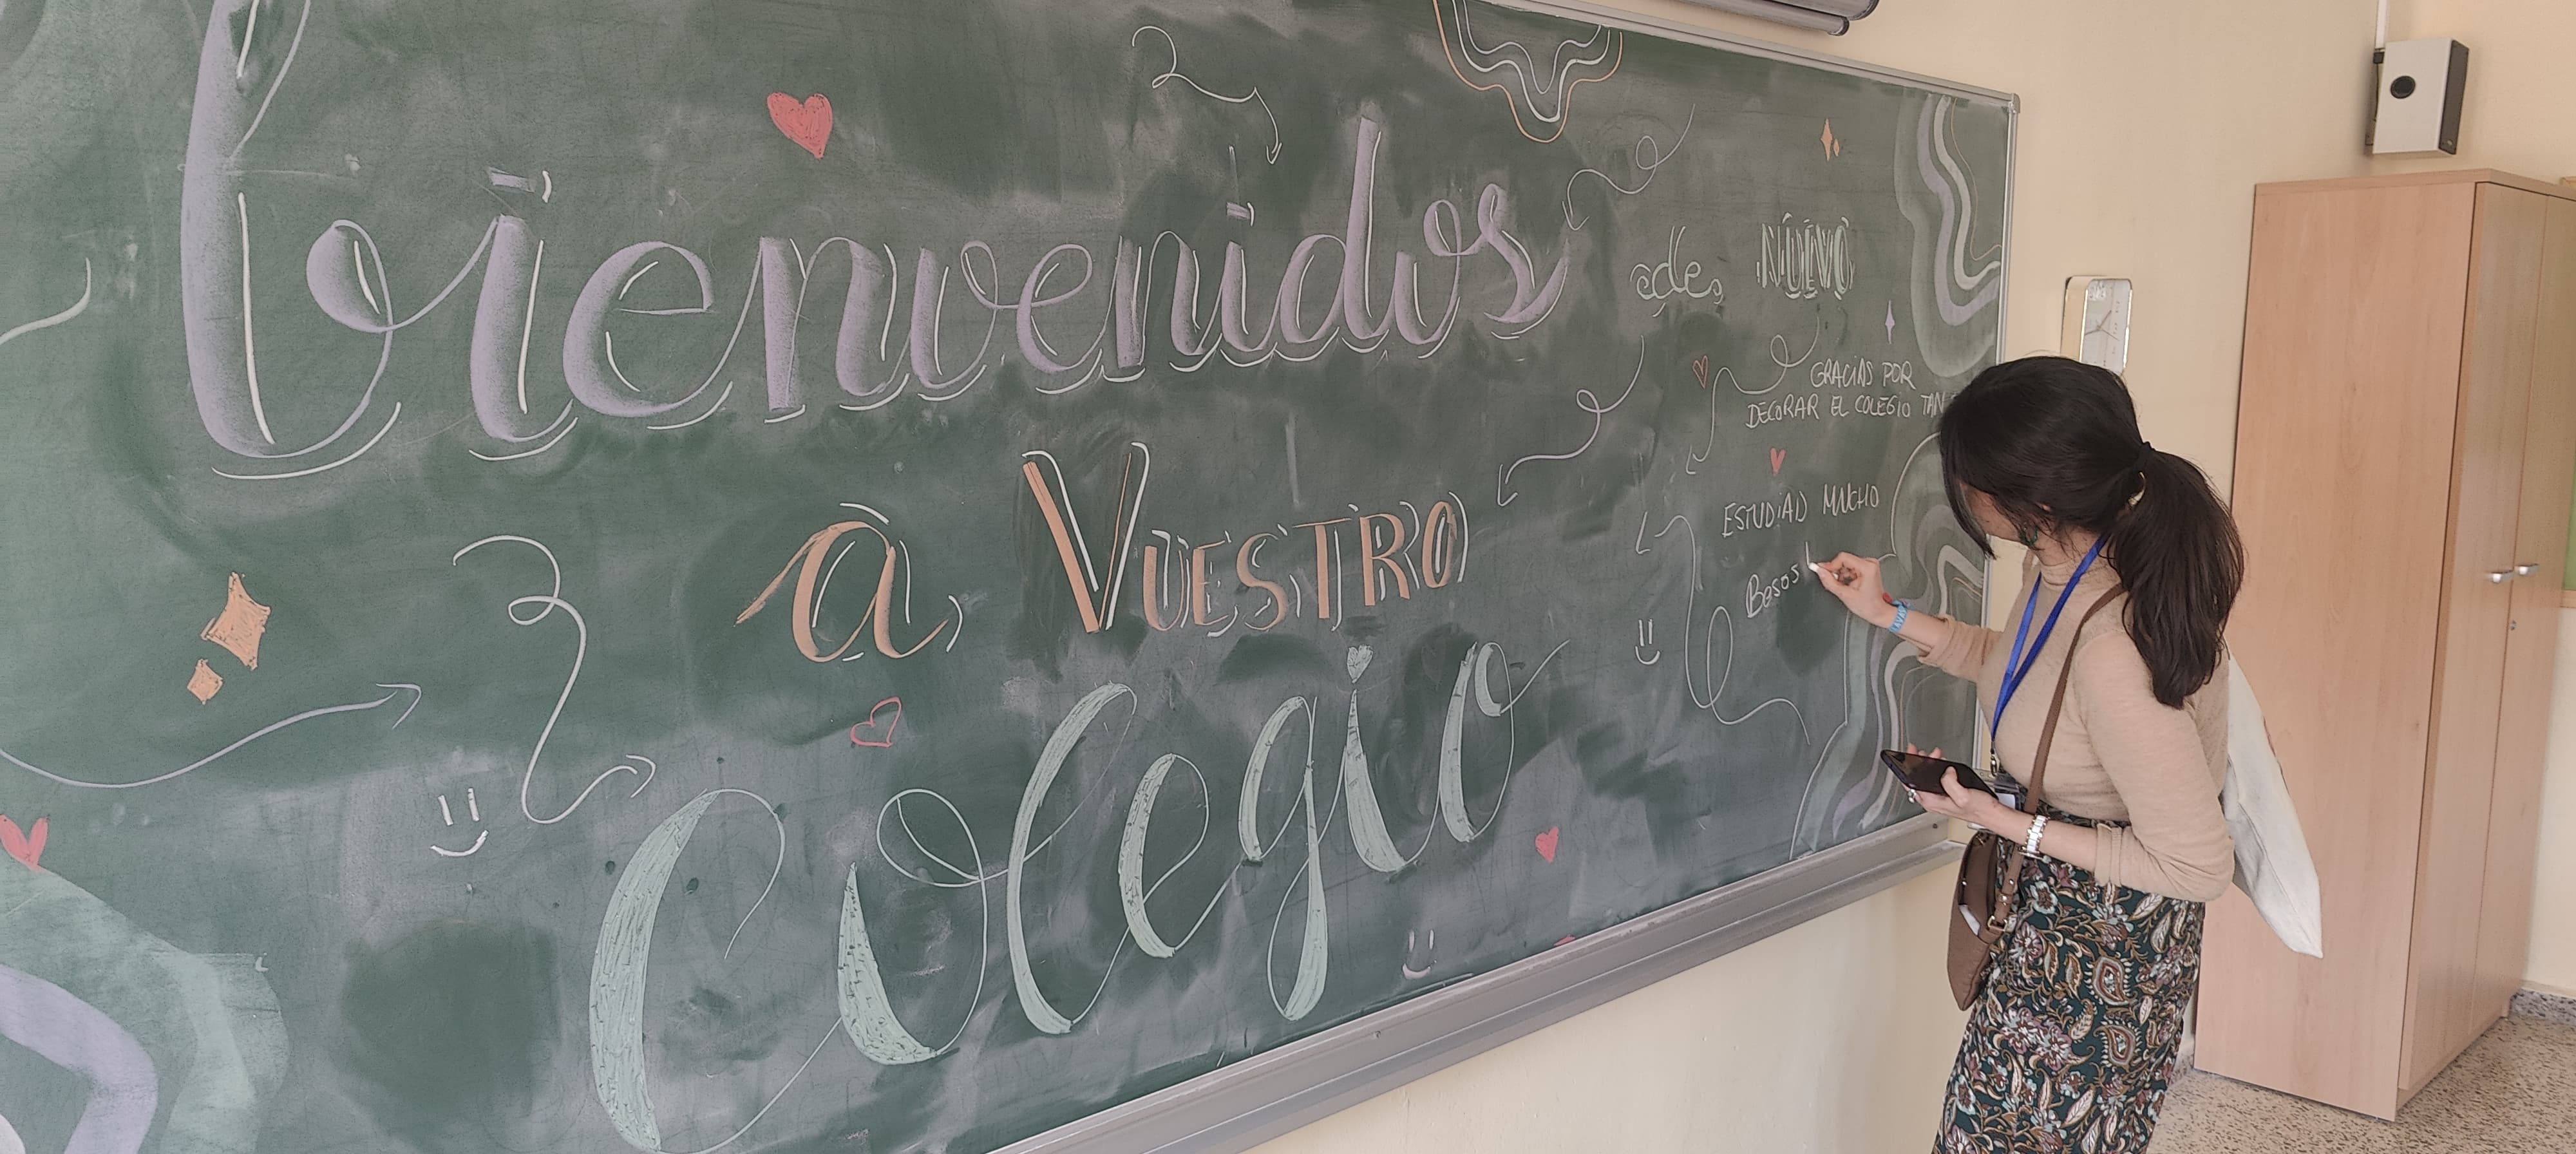 bienvenidos
a VUESTRO
colegio
de NUEVO
GRACIAS POR
DECORAR EL COLEGIO TAN
ESTUDIAD MUCHO
Besos